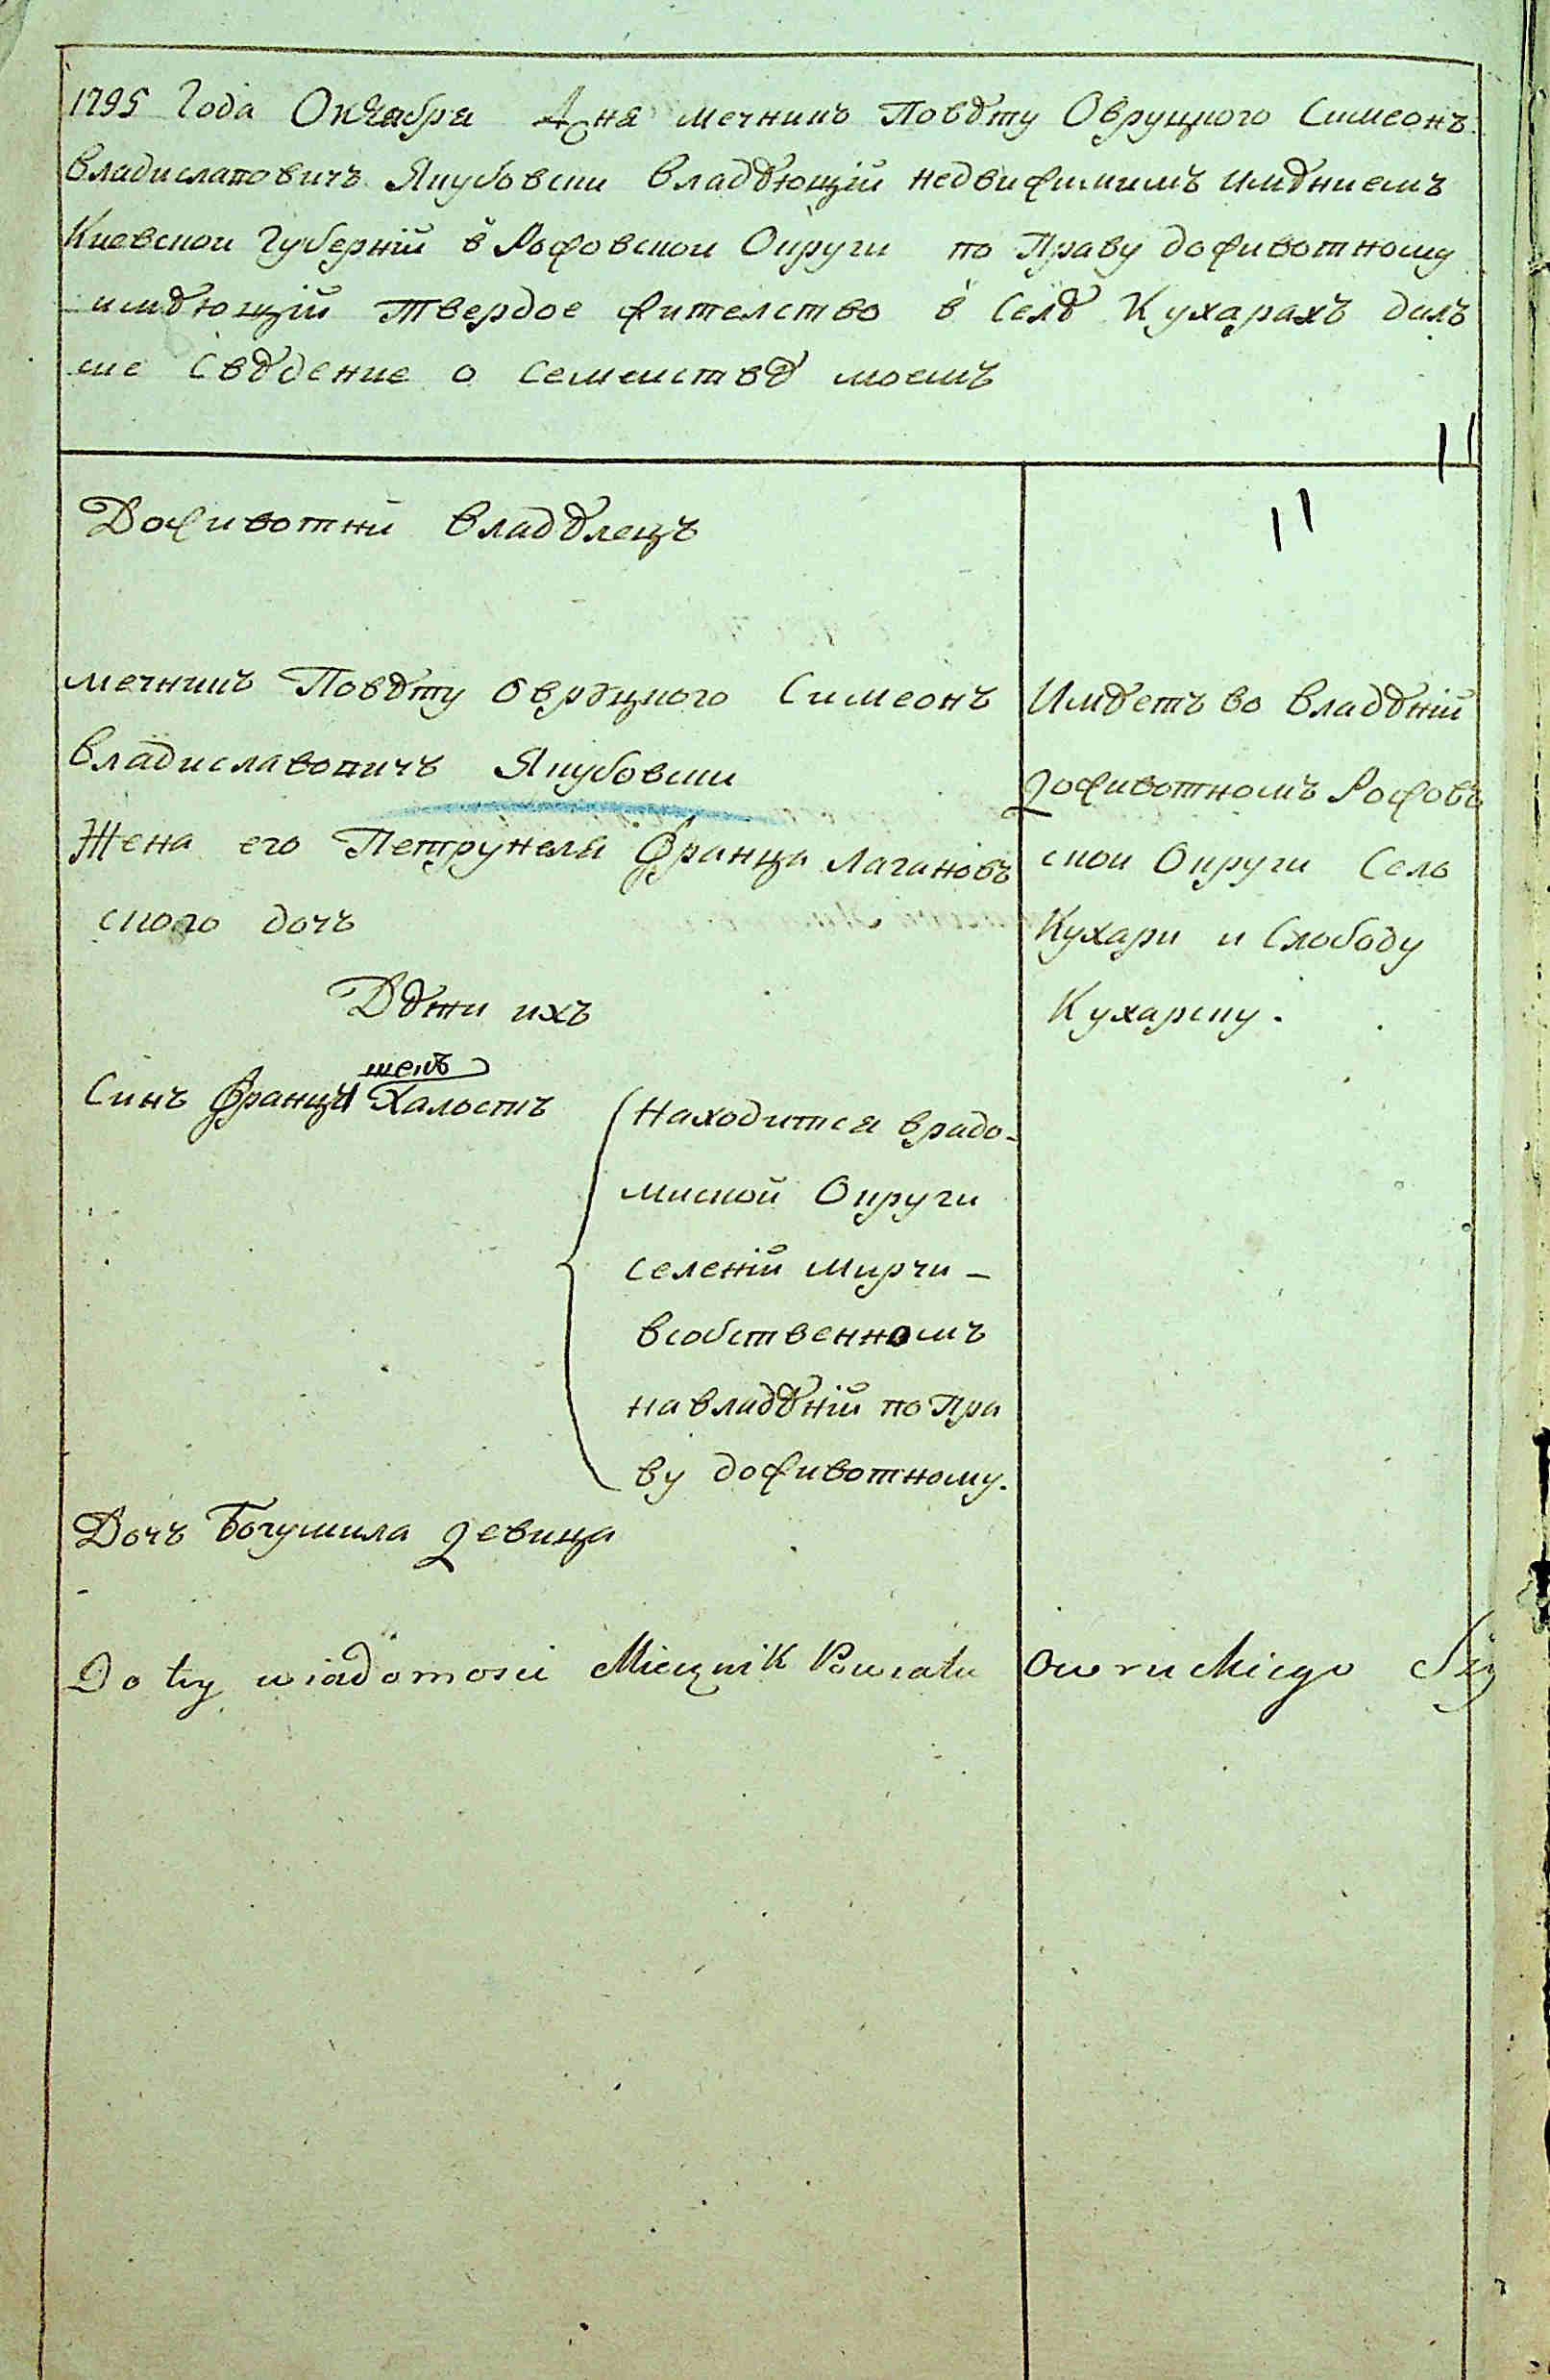 1795 Года Октабря Дня мечникъ Повѣту Овруцкого Симеонъ
Владиславовичъ Якубовски владѣющій недвижимимъ имѣниемъ
Киевскои Губерній в Рожовскои Округи по Праву доживотному
имѣющій твердое жителство в Селѣ Кухарахъ дилъ
ме Свѣдение о семеиствѣ моемъ
11
Доживотни владѣлецъ
11
мечникъ Повѣту Овруцкого Симеонъ
Владиславовичъ Якубовски
Жена его Петрунеля Франца Лагановъ
ского дочъ
Дѣти ихъ
шекъ
Синъ Францы Халостъ
Находится врадо-
миской Округи
селеній мирчи -
всобственномъ
на владѣній по Пра
ву доживотному.
Дочъ Богумила девица
Имѣетъ во владѣній
доживотномъ Рожовъ
скои Округи Село
Кухари и Слободу
Кухарску.
Do tey wiadomosci Miecznik Powiatu Owruckiego Szy